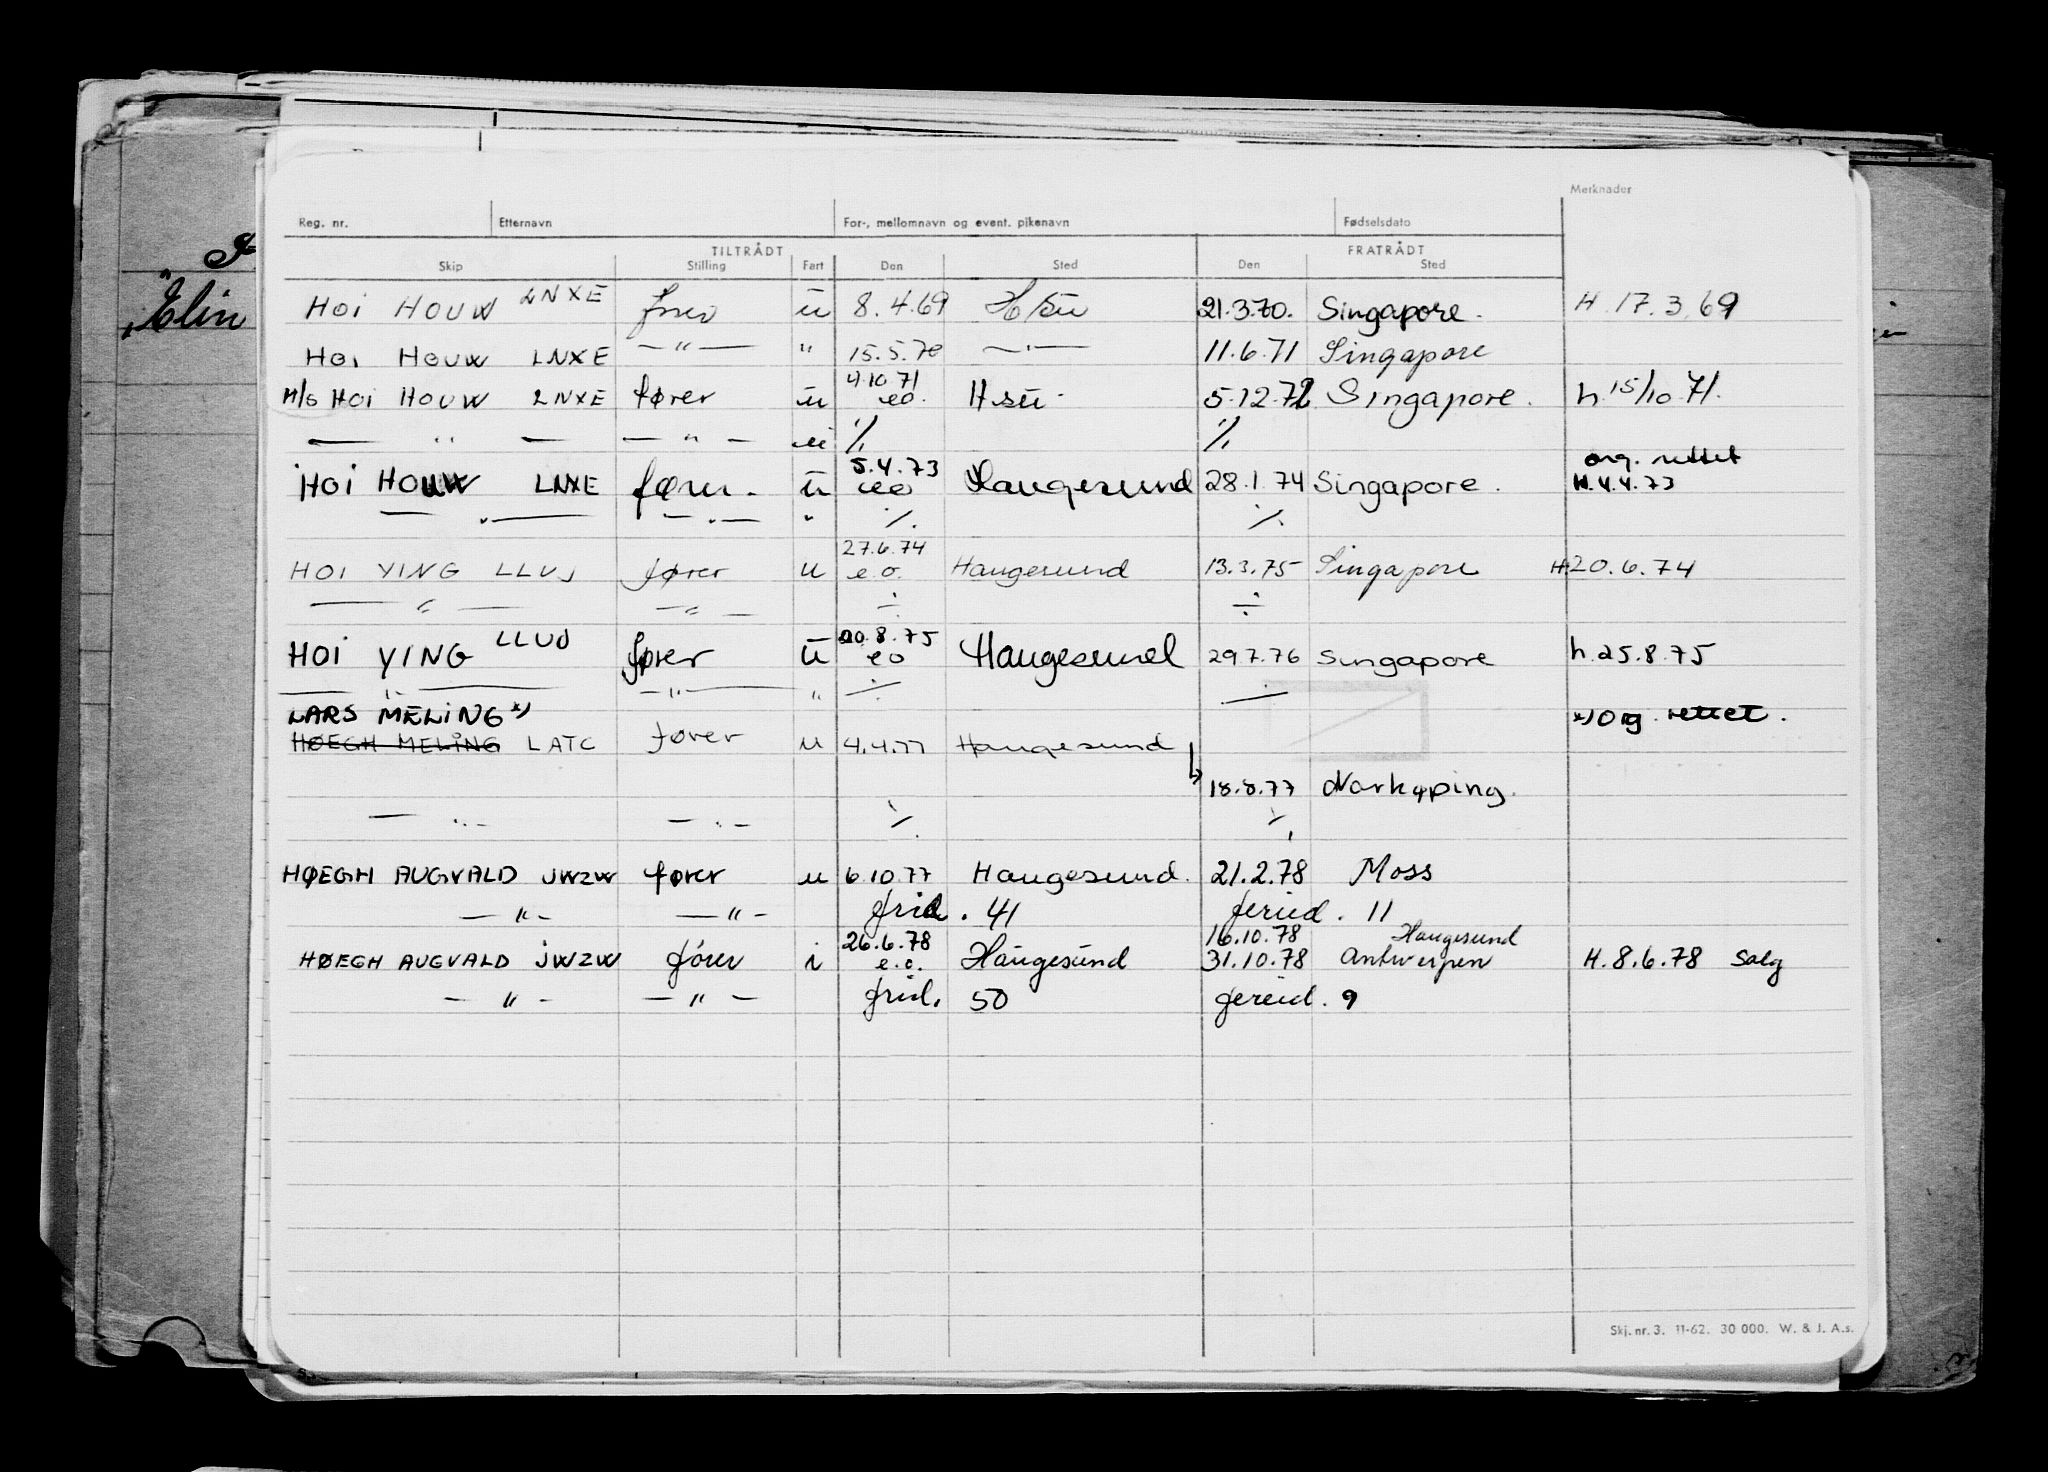 Merknader
Reg. nr. Etternavn For-, mellomnavn og event. pikenavn Fødselsdato
TILTRÅDT FRATRÅDT
Skip Stilling Fart Den Sted Den Sted
HOI HOUW LNXE fører ū 8.4.69 H/sū 21.3.70. Singapore. H. 17.3.69
HOI HOUW LNXE —"— " 15.5.70 —"— 11.6.71 Singapore
4.10.71
M/S HOI HOUW LNXE fører ū eo. H.sū. 5.12.72 Singapore. h. 15/10.71.
— " — — " — ū ·/. ·/.
5.4.73 org. rettet
HOI HOUW LNXE fører. ū eo Haugesund 28.1.74 Singapore. H.4.4.73
— " — — " — " ·/. ·/.
27.6.74
HOI YING LLVJ fører u e.o. Haugesund 13.3.75 Singapore H.20.6.74
— " — — " — ÷ ÷
LLUO 20.8.75
HOI YING fører ū eo Haugesund 29.7.76 Singapore h.25.8.75
— " — — " — " ÷ ÷
LARS MELING *) *) Org. rettet.
HØEGH MELING LATC fører u 4.4.77 Haugesund
18.8.77 Norkøping.
— " — — " — ·/. ·/.
HØEGH AUGVALD JWZW fører u 6.10.77 Haugesund. 21.2.78 Moss
— " — — " — frid. 41 feried. 11
26.6.78 16.10.78 Haugesund
HØEGH AUGVALD JWZW fører i e.o. Haugesund 31.10.78 Antwerpen H.8.6.78 Salg
— " — — " — frid. 50 fereid. 9
Skj. nr. 3. 11-62. 30 000. W. & J. A.s.
"Elin